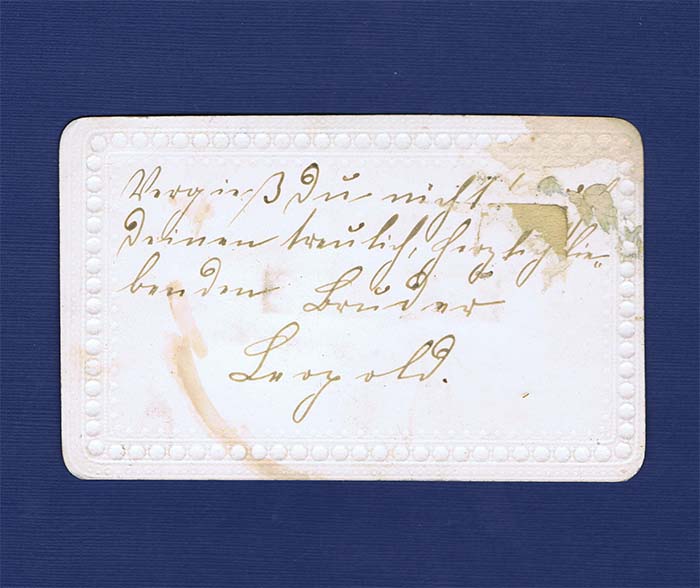 Vergieß du nicht
deinen treulich, herzlich lie-
benden Bruder
Leopold.